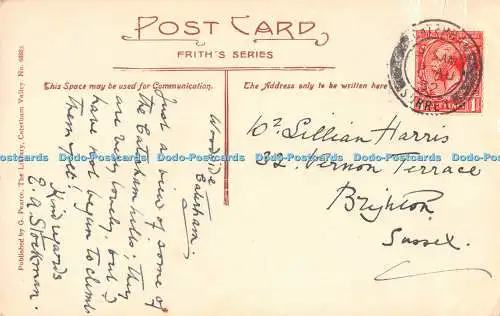 POST CARD
FRITH'S SERIES
This Space may be used for Communication.
The Address only to be written here
Woodside
Caterham.
Just a view of some of
the Caterham hills; they
are very lovely, but I
have not begun to climb
them yet!
Kind regards
E. A. Stockman.
Lillian Harris
32 Vernon Terrace
Brighton.
Sussex.
Published by G. Pearce, The Library, Caterham Valley. No.
SURREY
Dodo-Postcards Dodo-Postcards Dodo-Postcards Dodo-Postcards Dodo-Postcards Dodo-Postcards